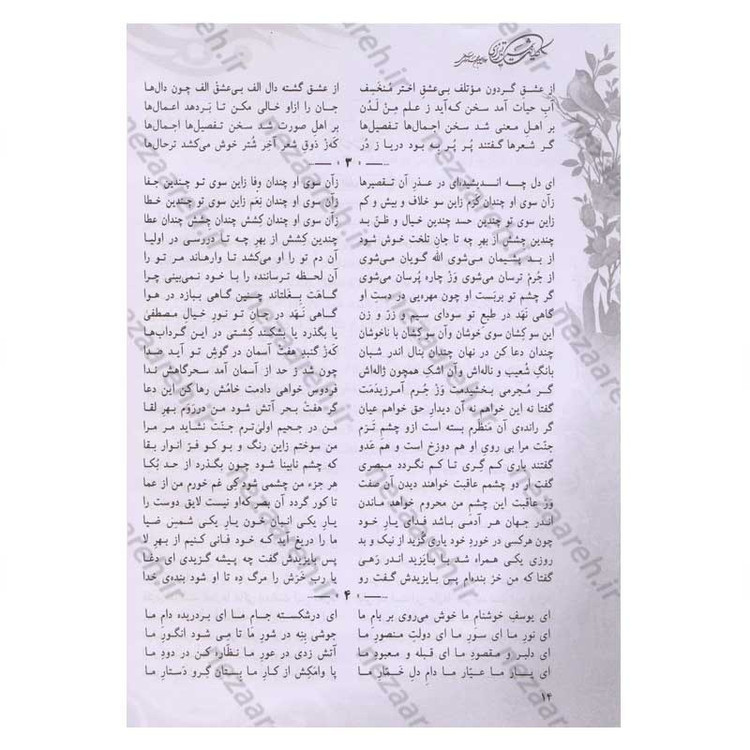 کلیات شمس تبریزی
از عشق گردون مؤتلف بی‌عشق اختر منخسف از عشق گشته دال الف بی‌عشق الف چون دال‌ها
آب حیات آمد سخن که‌آید ز علم مِنْ لَدُن جان را ازاو خالی مکن تا بَردهد اعمال‌ها
بر اهلِ معنی شد سخن اِجمال‌ها تفصیل‌ها بر اهلِ صورت شد سخن تفصیل‌ها اجمال‌ها
گر شعرها گفتند پُر پُر به بود دریا ز دُر کَه‌ز ذوقِ شعر آخر شُتر خوش می‌کشد ترحال‌ها
۳
ای دل چه اندیشیده‌ای در عذرِ آن تقصیرها زآن سوی او چندان وفا زاین سوی تو چندین جفا
زآن سوی او چندان کَرَم زاین سو خلاف و بیش و کم زآن سوی او چندان نِعَم زاین سوی تو چندین خطا
زاین سوی تو چندین حسد چندین خیال و ظنّ بد زآن سوی او چندان کِشش چندان چِشش چندان عطا
چندین چشش از بهرِ چه تا جانِ تلخت خوش شود چندین کِشش از بهرِ چه تا دررسی در اولیا
از بد پشیمان می‌شوی الله گویان می‌شوی آن دم تو را او می‌کشد تا وارهاند مر تو را
از جُرم ترسان می‌شوی وَز چاره پُرسان می‌شوی آن لحظه ترساننده را با خود نمی‌بینی چرا
گر چشمِ تو بربَست او چون مهره‌یی در دستِ او گاهَت بِغَلتاند چنین گاهی ببازد در هوا
گاهی نَهَد در طبعِ تو سودای سیم و زرّ و زن گاهی نَهَد در جانِ تو نورِ خیالِ مصطفیٰ
این سو کِشان سوی خوشان وآن سو کشان با ناخوشان یا بگذرد یا بشکند کِشتی در این گرداب‌ها
چندان دعا کن در نهان چندان بنال اندر شبان کَه‌ز گنبدِ هفت آسمان در گوشِ تو آید صدا
بانگِ شُعیب و ناله‌اش وآن اشکِ همچون ژاله‌اش چون شد ز حد از آسمان آمد سحرگاهش ندا
گر مُجرمی بخشیدمت وَز جُرم آمرزیدمت فردوس خواهی دادمت خامُش رها کن این دعا
گفتا نه این خواهم نه آن دیدارِ حق خواهم عیان گر هفت بحر آتش شود من دررَوَم بهرِ لقا
گر رانده‌ی آن مَنظَرم بسته است ازو چشمِ تَرَم من در جحیم اولی‌ترم جنّت نشاید مر مرا
جنّت مرا بی رویِ او هم دوزخ است و هم عَدو من سوختم زاین رنگ و بو کو فرّ انوارِ بقا
گفتند باری کم گِری تا کم نگردد مبصری که چشم نابینا شود چون بگذرد از حد بُکا
گفت ار دو چشمم عاقبت خواهند دیدن آن صفت هر جزءِ من چشمی شود کی غم خورم من از عما
وَر عاقبت این چشمِ من محروم خواهد ماندن تا کور گردد آن بصر که‌او نیست لایق دوست را
اندر جهان هر آدمی باشد فدای یارِ خود یارِ یکی انبانِ خون یارِ یکی شمسِ ضیا
چون هرکسی در خوردِ خود یاری گزید از نیک و بد ما را دریغ آید که خود فانی کنیم از بهرِ لا
روزی یکی همراه شد با بایزید اندر رَهی پس بایزیدش گفت چه پیشه گزیدی ای دغا
گفتا که من خر بنده‌ام پس بایزیدش گفت رو یا رب خرش را مرگ دِه تا او شود بنده‌ی خدا
۴
ای یوسفِ خوشنامِ ما خوش می‌روی بر بامِ ما ای درشکسته جامِ ما ای بردریده دامِ ما
ای نورِ ما ای سورِ ما ای دولتِ منصورِ ما جوشی بِنِه در شورِ ما تا می شود انگورِ ما
ای دلبر و مقصودِ ما ای قبله و معبودِ ما آتش زدی در عودِ ما نظّاره کن در دودِ ما
ای یارِ ما عیّارِ ما دامِ دلِ خَمّارِ ما پا وامَکِش از کارِ ما بستان گِرو دستارِ ما
۱۴
nezaareh.ir